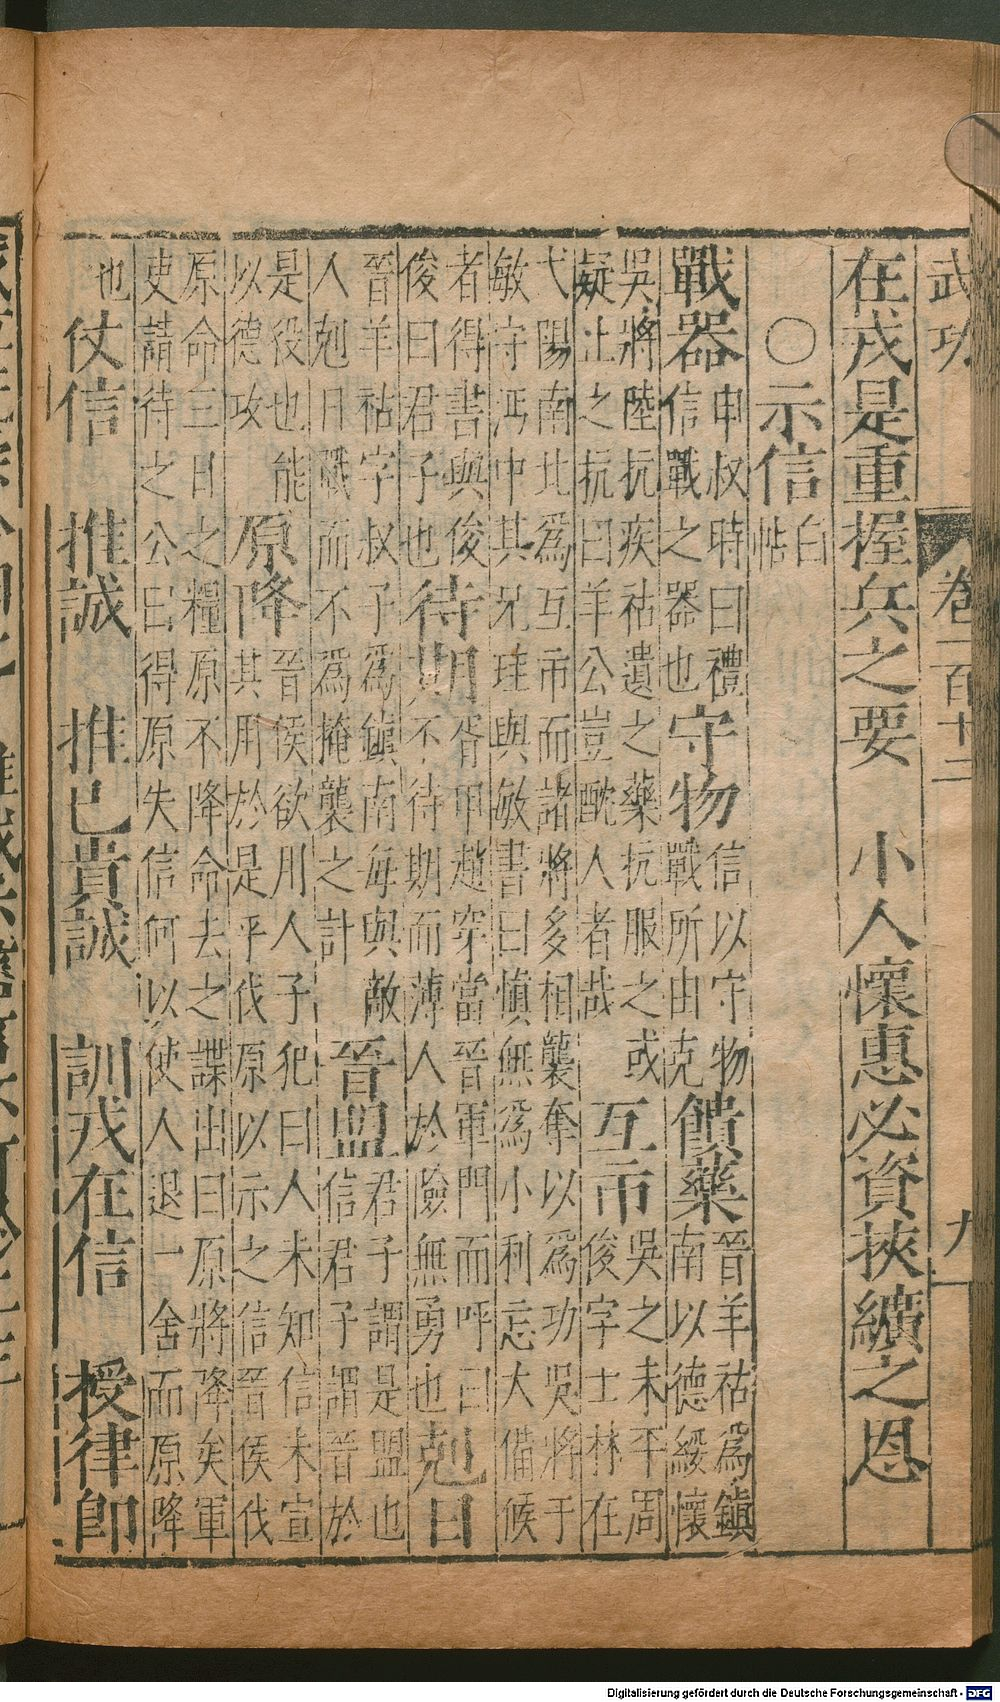 武功 卷一百十二 九
在戎是重握兵之要 小人懷惠必資挾纊之恩
○示信 白帖
戰器 申叔時曰禮信戰之器也 守物 信以守物戰所由克 饋藥 晉羊祜為鎮南以德綏懷
吳將陸抗疾祜遺之藥抗服之或疑止之抗曰羊公豈酖人者哉 互市 吳之未平周俊字士林在
弋陽南北為互市而諸將多相襲奪以為功吳將于敏守沔中其兄珪與敏書曰慎無為小利忘大備候
者得書與俊俊曰君子也 待期 胥甲趙穿當晉軍門而呼曰不待期而薄人於險無勇也 剋日
晉羊祜字叔子為鎮南每與敵人剋日戰而不為掩襲之計 晉盟 君子謂是盟也信君子謂晉於
是役也能以德攻 原降 晉侯欲用人子犯曰人未知信未宣其用於是乎伐原以示之信晉侯伐
原命三日之糧原不降命去之諜出曰原將降矣軍吏請待之公曰得原失信何以使人退一舍而原降
也 仗信 推誠 推己貴誠 訓戎在信 授律即